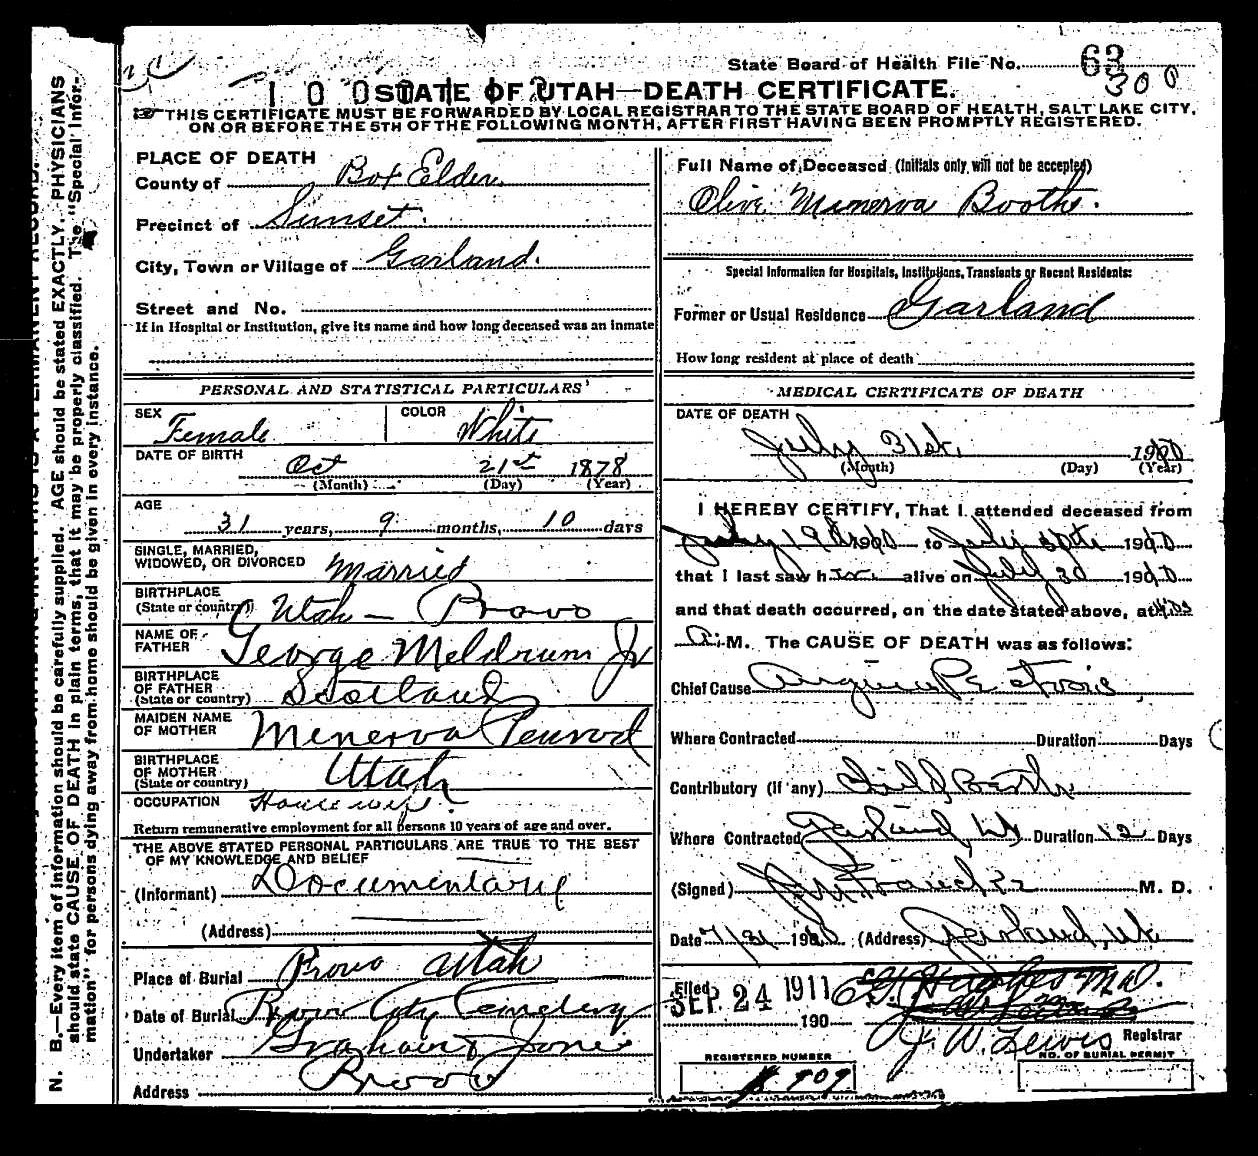 State Board of Health File No. 63
300
STATE OF UTAH—DEATH CERTIFICATE.
THIS CERTIFICATE MUST BE FORWARDED BY LOCAL REGISTRAR TO THE STATE BOARD OF HEALTH, SALT LAKE CITY,
ON OR BEFORE THE 5TH OF THE FOLLOWING MONTH, AFTER FIRST HAVING BEEN PROMPTLY REGISTERED.
PLACE OF DEATH
County of Box Elder
Precinct of Sunset.
City, Town or Village of Garland.
Street and No.
If in Hospital or Institution, give its name and how long deceased was an inmate
PERSONAL AND STATISTICAL PARTICULARS
SEX Female COLOR White
DATE OF BIRTH Oct 21st 1878
(Month) (Day) (Year)
AGE
31 years, 9 months, 10 days
SINGLE, MARRIED,
WIDOWED, OR DIVORCED Married
BIRTHPLACE
(State or country) Utah — Provo
NAME OF
FATHER George Meldrum Jr
BIRTHPLACE
OF FATHER
(State or country) Scotland
MAIDEN NAME
OF MOTHER Minerva Penrod
BIRTHPLACE
OF MOTHER
(State or country) Utah
OCCUPATION Housewife.
Return remunerative employment for all persons 10 years of age and over.
THE ABOVE STATED PERSONAL PARTICULARS ARE TRUE TO THE BEST
OF MY KNOWLEDGE AND BELIEF
(Informant) Documentary
(Address)
Place of Burial Provo Utah
Date of Burial Provo City Cemetery
Undertaker Graham & Jones
Address Provo
Full Name of Deceased (Initials only will not be accepted)
Olive Minerva Booth.
Special Information for Hospitals, Institutions, Transients or Recent Residents:
Former or Usual Residence Garland
How long resident at place of death
MEDICAL CERTIFICATE OF DEATH
DATE OF DEATH
July 31st, 1910
(Month) (Day) (Year)
I HEREBY CERTIFY, That I attended deceased from
July 19th 1910 to July 30th 1910
that I last saw her alive on July 30 1910
and that death occurred, on the date stated above, at
A. M. The CAUSE OF DEATH was as follows:
Chief Cause Angina Pectoris
Where Contracted Duration Days
Contributory (If any) Child Birth
Where Contracted Garland Ut Duration 12 Days
(Signed) M. D.
Date 7/31 1910 (Address) Garland, Ut
Filed
SEP 24 1911
190
J. W. Lewis Registrar
REGISTERED NUMBER
NO. OF BURIAL PERMIT
909
N. B.—Every item of information should be carefully supplied. AGE should be stated EXACTLY. PHYSICIANS
should state CAUSE OF DEATH in plain terms, that it may be properly classified. The "Special Infor-
mation" for persons dying away from home should be given in every instance.